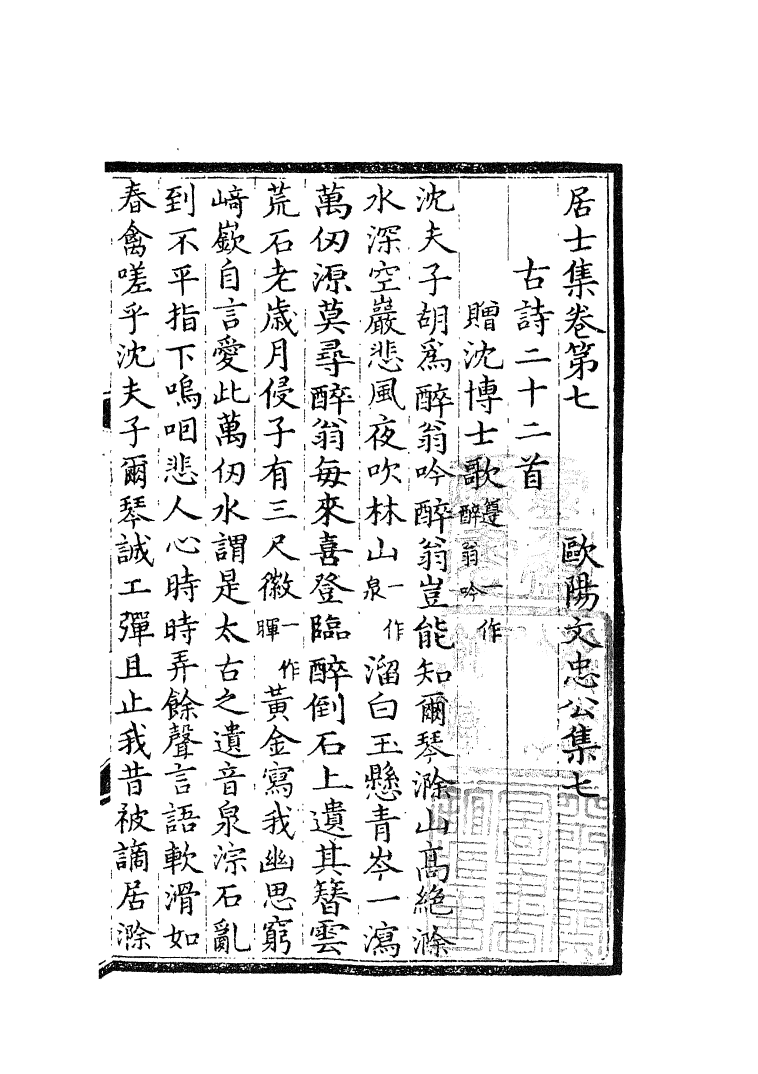 居士集卷第七　歐陽文忠公集七
古詩二十二首
贈沈博士歌篴一作醉翁吟
沈夫子胡爲醉翁吟醉翁豈能知爾琴滁山髙絶滁
水深空巖悲風夜吹林山一作泉溜白玉懸青岑一瀉
萬仞源莫尋醉翁每來喜登臨醉倒石上遺其簪雲
荒石老歲月侵子有三尺徽一作暉黃金寫我幽思窮
﨑嶔自言愛此萬仞水謂是太古之遺音泉淙石亂
到不平指下嗚咽悲人心時時弄餘聲言語軟滑如
春禽嗟乎沈夫子爾琴誠工彈且止我昔被謫居滁